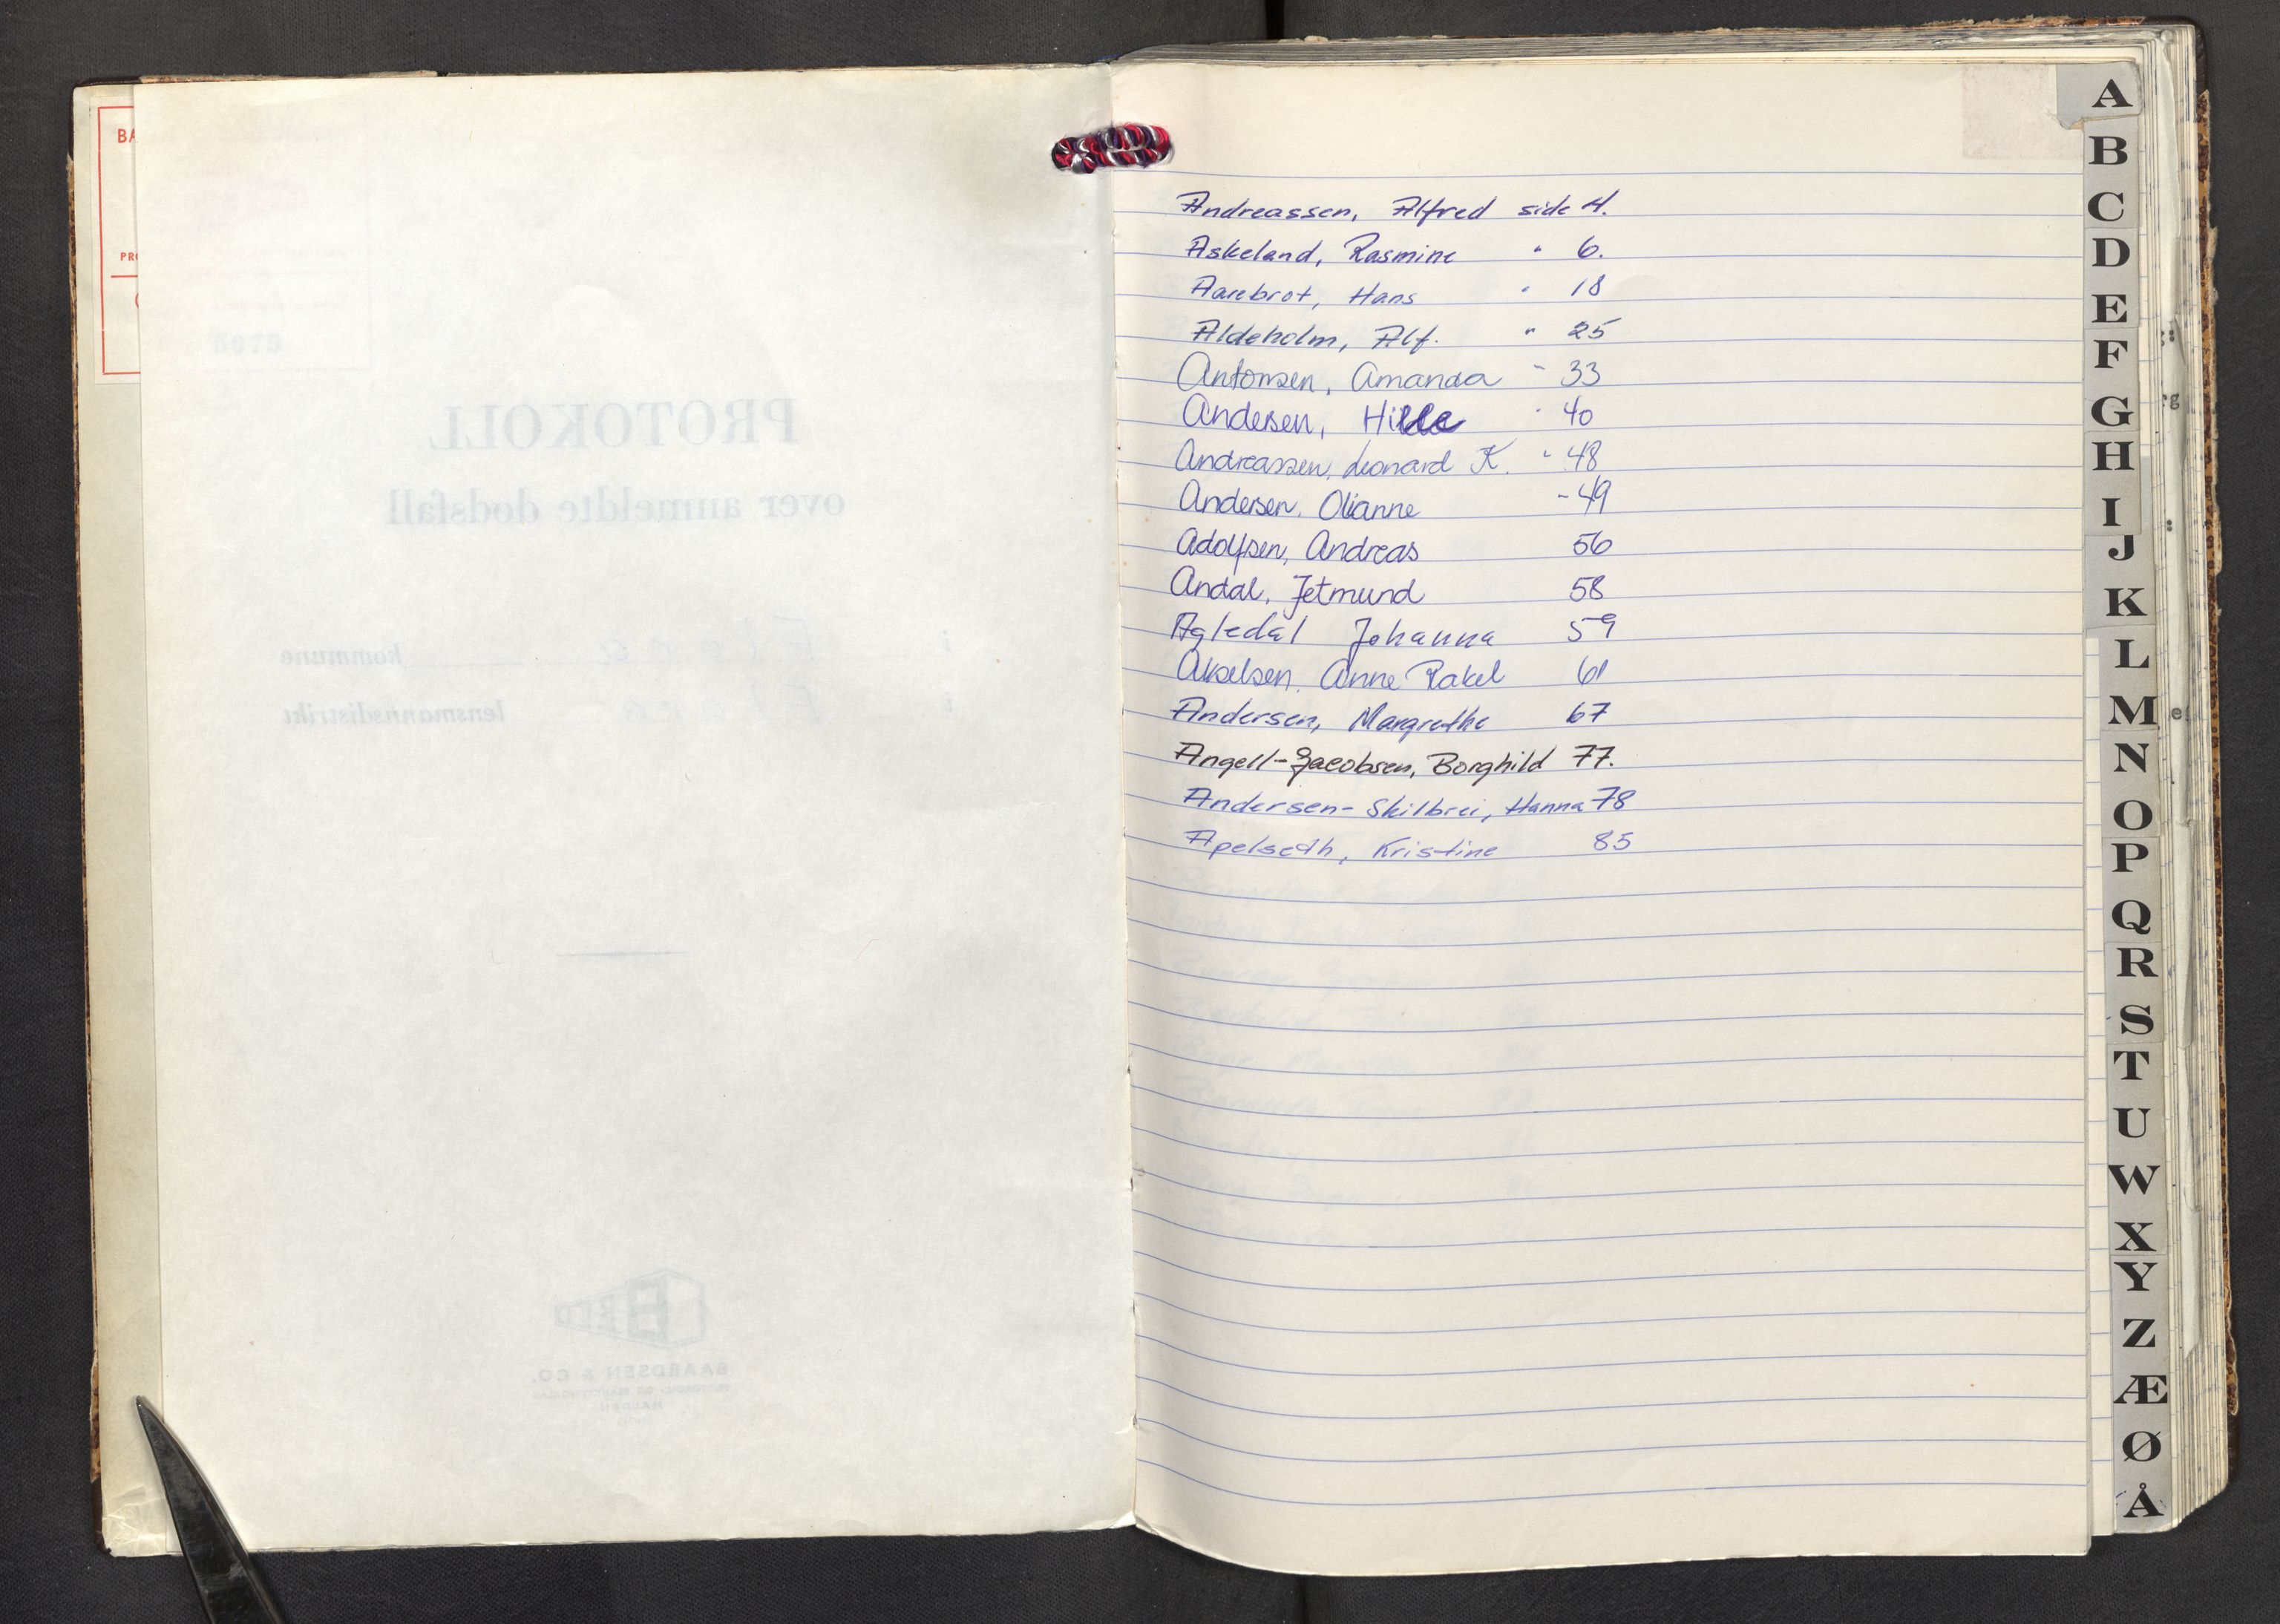 BA
PR
PROTOKOLL
over anmeldte dødsfall
i kommune
i lensmannsdistrikt
BAARDSEN & CO.
HALDEN
Andreassen, Alfred side 4.
Askeland, Rasmine " 6.
Aarebrot, Hans " 18
Aldeholm, Alf. " 25
Antonsen, Amanda " 33
Andersen, Hilda " 40
Andreassen, Leonard K. " 48
Andersen, Olianne - 49
Adolfsen, Andreas 56
Andal, Jetmund 58
Agledal Johanna 59
Akselsen, Anne Rakel 61
Andersen, Margrethe 67
Angell-Jacobsen, Borghild 77.
Andersen-Skilbrei, Hanna 78
Apelseth, Kristine 85
A
B
C
D
E
F
G
H
I
J
K
L
M
N
O
P
Q
R
S
T
U
W
X
Y
Z
Æ
Ø
Å